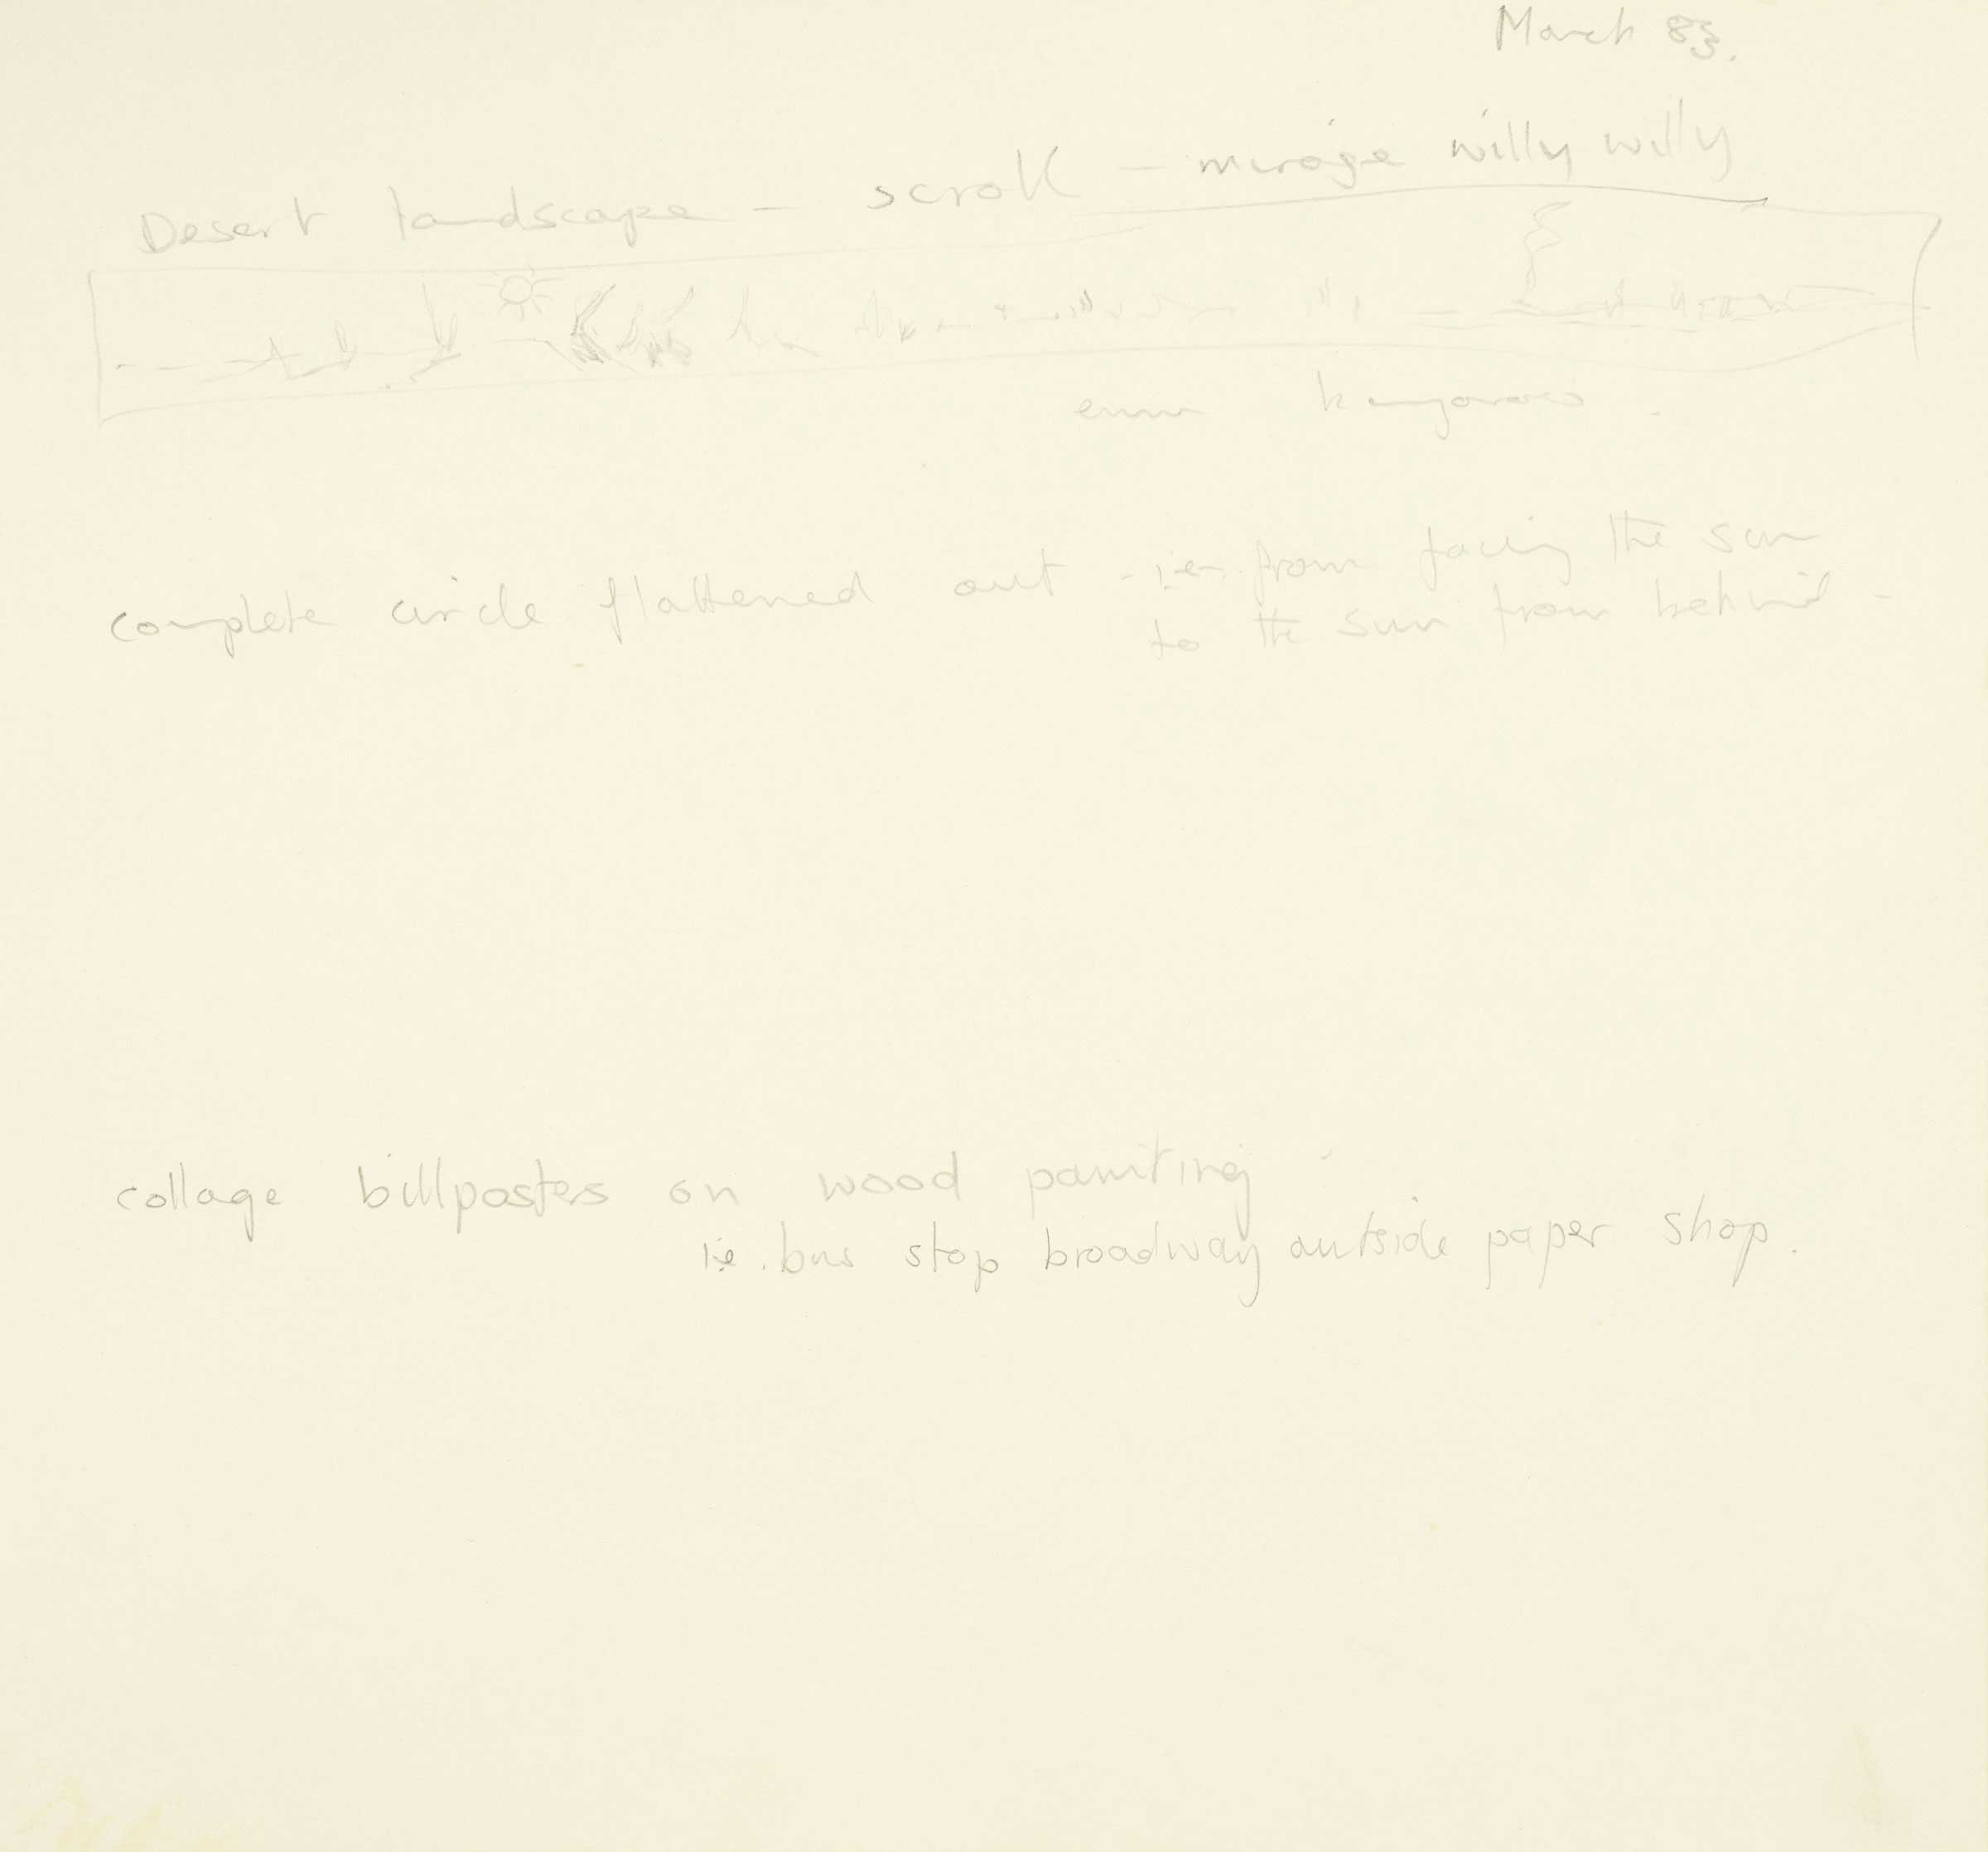 March 83.
Desert landscape – scroll – mirage willy willy
emu kangaroos .
complete circle flattened out - i.e. from facing the sun
to the sun from behind -
collage billposters on wood painting
i.e. bus stop broadway outside paper shop.